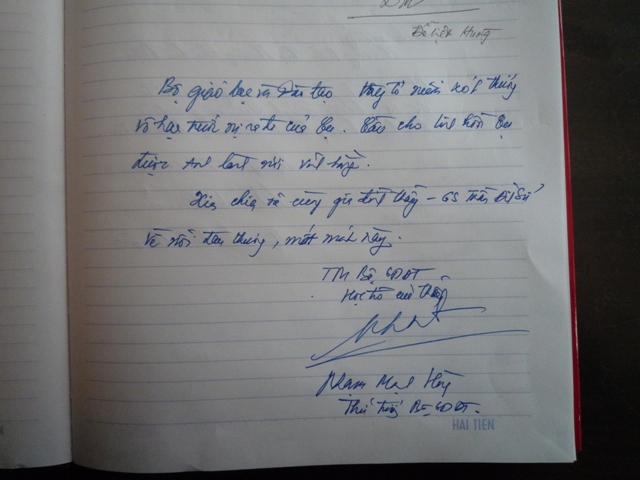 Đỗ Việt Hùng
Bộ giáo dục và Đào tạo bày tỏ niềm xót thương
vô hạn trước sự ra đi của Cụ. Cầu cho linh hồn Cụ
được an lành nơi vĩnh hằng.
Xin chia sẻ cùng gia đình thầy - GS Trần Đình Sử
về nỗi đau thương, mất mát này.
TM Bộ GDĐT
Học trò của thầy
Phạm Mạnh Hùng
Thứ trưởng Bộ GDĐT.
HAI TIEN